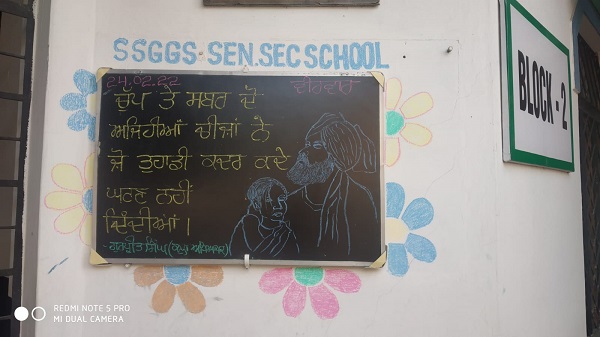 SSGGS SEN. SEC SCHOOL
24.02.22 ਵੀਰਵਾਰ
ਚੁੱਪ ਤੇ ਸਬਰ ਦੋ
ਅਜਿਹੀਆਂ ਚੀਜ਼ਾਂ ਨੇ
ਜੋ ਤੁਹਾਡੀ ਕਦਰ ਕਦੇ
ਘਟਣ ਨਹੀਂ
ਦਿੰਦੀਆਂ।
BLOCK-2
REDMI NOTE 5 PRO
MI DUAL CAMERA